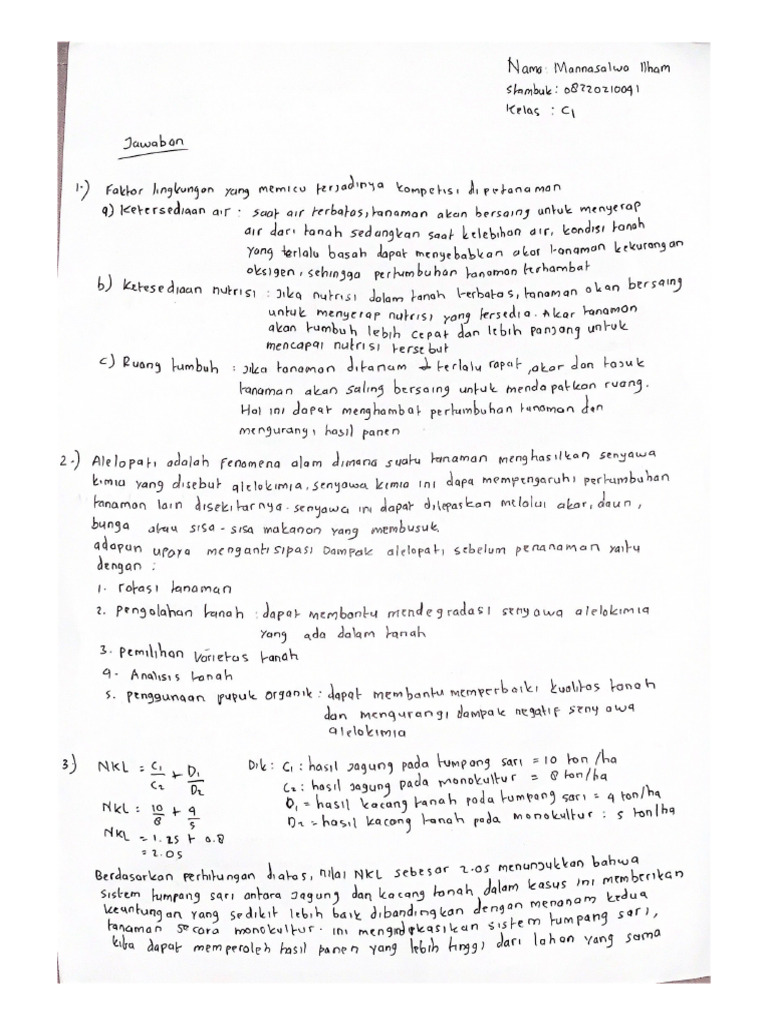 Nama: Mannasalwa Ilham
Stambuk: 08220210041
Kelas : C1
Jawaban
1.) Faktor lingkungan yang memicu terjadinya kompetisi dipetanaman
a) Ketersediaan air : saat air terbatas, tanaman akan bersaing untuk menyerap
air dari tanah sedangkan saat kelebihan air, kondisi tanah
yang terlalu basah dapat menyebabkan akar tanaman kekurangan
oksigen, sehingga pertumbuhan tanaman terhambat
b) Ketesediaan nutrisi : Jika nutrisi dalam tanah terbatas, tanaman akan bersaing
untuk menyerap nutrisi yang tersedia. Akar tanaman
akan tumbuh lebih cepat dan lebih panjang untuk
mencapai nutrisi tersebut
c) Ruang tumbuh : Jika tanaman ditanam terlalu rapat, akar dan tajuk
tanaman akan saling bersaing untuk mendapatkan ruang.
Hal ini dapat menghambat pertumbuhan tanaman dan
mengurangi hasil panen
2.) Alelopati adalah fenomena alam dimana suatu tanaman menghasilkan senyawa
kimia yang disebut alelokimia, senyawa kimia ini dapa mempengaruhi pertumbuhan
tanaman lain disekitarnya. senyawa ini dapat dilepaskan melalui akar, daun,
bunga atau sisa-sisa makanan yang membusuk.
adapun upaya mengantisipasi dampak alelopati sebelum penanaman yaitu
dengan :
1. rotasi tanaman
2. pengolahan tanah : dapat membantu mendegradasi senyawa alelokimia
yang ada dalam tanah
3. pemilihan varietas tanah
4. Analisis tanah
5. penggunaan pupuk organik : dapat membantu memperbaiki kualitas tanah
dan mengurangi dampak negatif senyawa
alelokimia
3.) NKL = C1/C2 + D1/D2 Dik : C1 : hasil jagung pada tumpang sari = 10 ton/ha
C2 : hasil jagung pada monokultur = 8 ton/ha
NKL : 10/8 + 4/5 D1 = hasil kacang tanah pada tumpang sari = 4 ton/ha
NKL = 1.25 + 0.8 D2 = hasil kacang tanah pada monokultur : 5 ton/ha
= 2.05
Berdasarkan perhitungan diatas, nilai NKL sebesar 2.05 menunjukkan bahwa
sistem tumpang sari antara jagung dan kacang tanah dalam kasus ini memberikan
keuntungan yang sedikit lebih baik dibandingkan dengan menanam kedua
tanaman secara monokultur. ini mengindekasikan sistem tumpang sari,
kita dapat memperoleh hasil panen yang lebih tinggi dari lahan yang sama